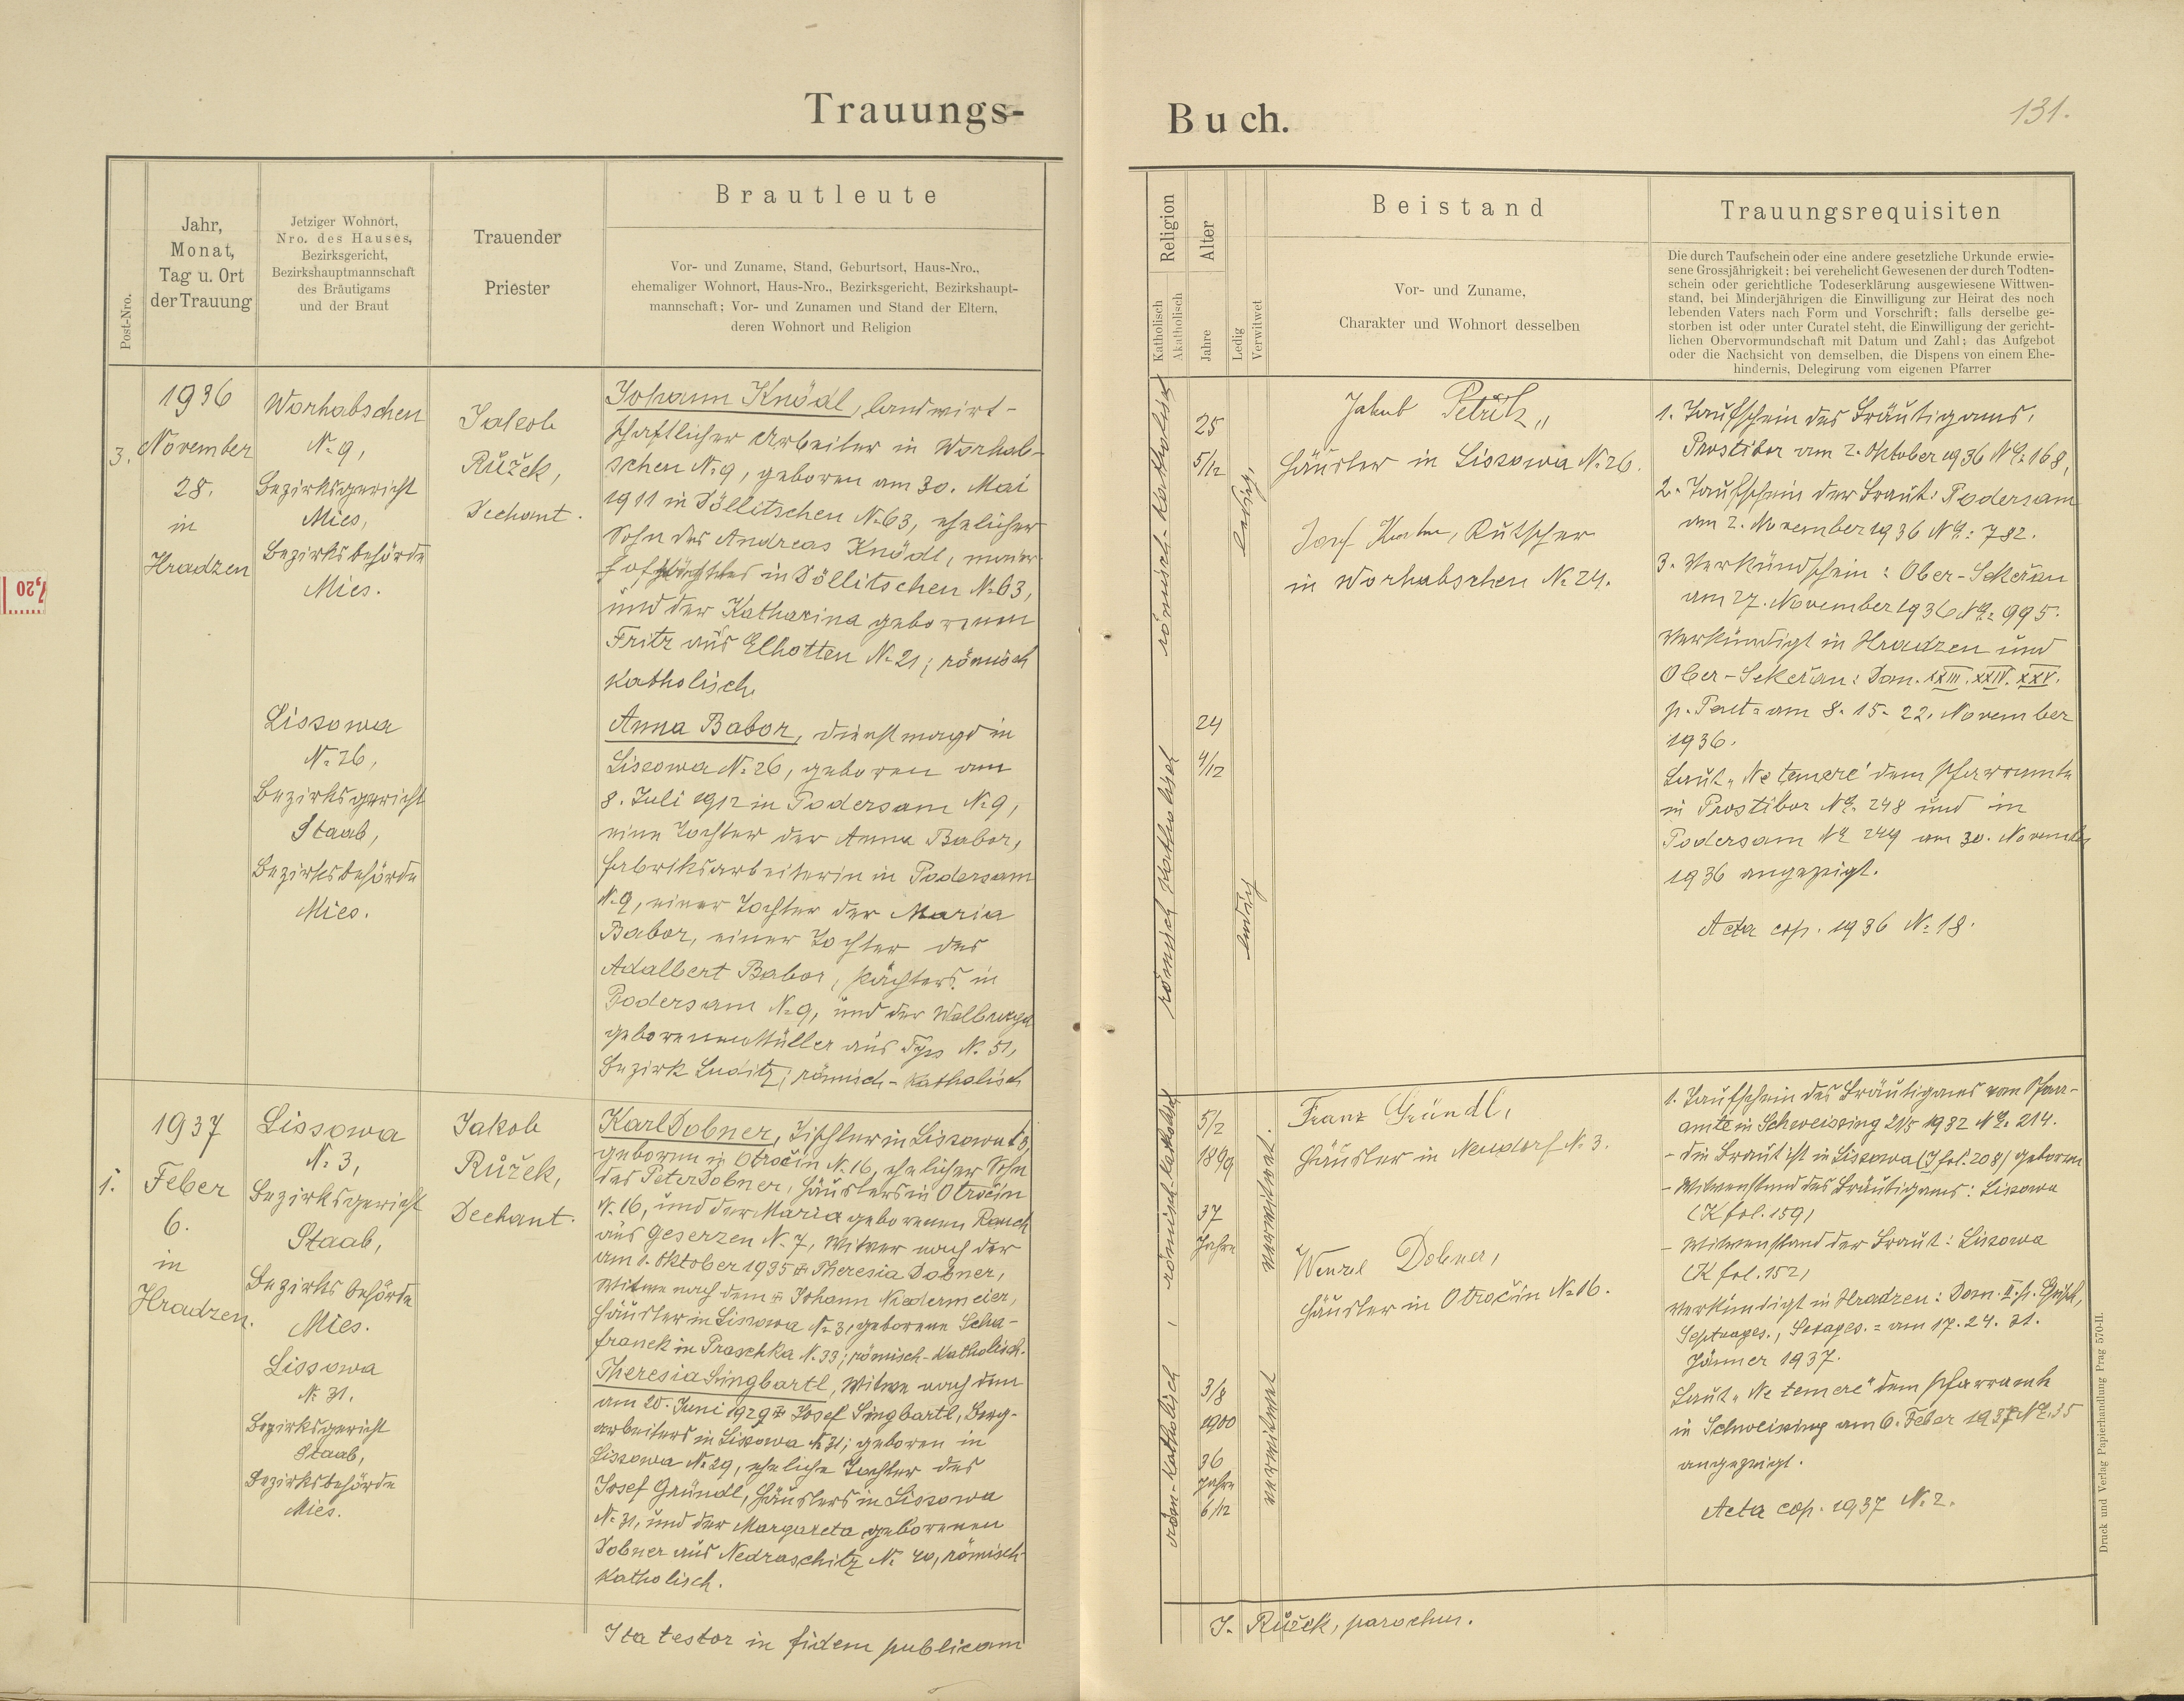 Trauungs-
Buch.
131.
Post-Nro.
Jahr,
Monat,
Tag u. Ort
der Trauung
Jetziger Wohnort,
Nro. des Hauses,
Bezirksgericht,
Bezirkshauptmannschaft
des Bräutigams
und der Braut
Trauender
Priester
Brautleute
Vor- und Zuname, Stand, Geburtsort, Haus-Nro.,
ehemaliger Wohnort, Haus-Nro., Bezirksgericht, Bezirkshaupt-
mannschaft; Vor- und Zunamen und Stand der Eltern,
deren Wohnort und Religion
Religion
Katholisch
Akatholisch
Alter
Jahre
Ledig
Verwitwet
Beistand
Vor- und Zuname,
Charakter und Wohnort desselben
Trauungsrequisiten
Die durch Taufschein oder eine andere gesetzliche Urkunde erwie-
sene Grossjährigkeit; bei verehelicht Gewesenen der durch Todten-
schein oder gerichtliche Todeserklärung ausgewiesene Wittwen-
stand, bei Minderjährigen die Einwilligung zur Heirat des noch
lebenden Vaters nach Form und Vorschrift; falls derselbe ge-
storben ist oder unter Curatel steht, die Einwilligung der gericht-
lichen Obervormundschaft mit Datum und Zahl; das Aufgebot
oder die Nachsicht von demselben, die Dispens von einem Ehe-
hindernis, Delegirung vom eigenen Pfarrer
3.
1936
November
28.
in
Hradzen
Worhabschen
N. 9,
Bezirksgericht
Mies,
Bezirksbehörde
Mies.
Lissowa
N. 26,
Bezirksgericht
Staab,
Bezirksbehörde
Mies.
Jakob
Růžek,
Dechant.
Johann Knödl, landwirt-
schaftlicher Arbeiter in Worhab-
schen N. 9, geboren am 30. Mai
1911 in Döllitschen N. 63, ehelicher
Sohn des Andreas Knödl,
in Döllitschen N. 63,
und der Katharina geborenen
Fritz aus Elhotten N. 21; römisch
katholisch.
Anna Babor, Dienstmagd in
Lissowa N. 26, geboren am
8. Juli 1912 in Podersam N. 9,
eine Tochter der Anna Babor,
Fabriksarbeiterin in Podersam
N. 9, einer Tochter der Maria
Babor, einer Tochter des
Adalbert Babor, Pächters in
Podersam N. 9, und der Walburga
geborenen Müller aus N. 51,
Bezirk Luditz; römisch-katholisch
römisch-katholisch
römisch katholisch
25
5/12
24
4/12
ledig.
ledig
Jakub Petřík,
Häusler in Lissowa N. 26.
Josef, Kutscher
in Worhabschen N. 24.
1. Taufschein des Bräutigams,
Prostibor am 2. Oktober 1936 NE: 168,
2. Taufschein der Braut: Podersam
am 2. November 1936 NE: 782.
3. Verkündschein: Ober-Sekeřan
am 27. November 1936 NE: 995.
Verkündigt in Hradzen und
Ober-Sekeřan: Dom. XXIII. XXIV. XXV.
p. Pent. = am 8. 15. 22. November
1936.
Laut „Ne temere" dem Pfarramte
in Prostibor NE. 248 und in
Podersam NE 249 am 30. November
1936 angezeigt.
Acta cop. 1936 N. 18.
1.
1937
Feber
6.
in
Hradzen.
Lissowa
N. 3,
Bezirksgericht
Staab,
Bezirksbehörde
Mies.
Lissowa
N. 31.
Bezirksgericht
Staab,
Bezirksbehörde
Mies.
Jakob
Růžek,
Dechant.
Karl Dobner, Tischler in Lissowa N. 3,
geboren in Otročin N. 16, ehelicher Sohn
des Peter Dobner, Häuslers in Otročin
N. 16, und der Maria geborenen Rauch
aus Geserzen N. 7, Witwer nach der
am 1. Oktober 1935 + Theresia Dobner,
Witwe nach dem + Johann Niedermeier,
Häusler in Lissowa N. 3, geborene Scha-
franek in Praschka N. 33; römisch-katholisch.
Theresia Singbartl, Witwe nach dem
am 20. Juni 1929 + Josef Singbartl, Berg-
arbeiters in Lissowa N. 31; geboren in
Lissowa N. 29, eheliche Tochter des
Josef Gründl, Häuslers in Lissowa
N. 31, und der Margareta geborenen
Dobner aus Nedraschitz N. 40, römisch-
katholisch.
römisch-katholisch
röm.-katholisch
5/2
1899
37
Jahre
3/8
1900
36
Jahre
6/12
verwitwet.
verwitwet
Franz Gründl,
Häusler in Neudorf N. 3.
Wenzel Dobner,
Häusler in Otročin N. 16.
1. Taufschein des Bräutigams vom Pfarr-
amte in Schweissing 21/5 1932 NE. 214.
- die Braut ist in Lissowa (J fol. 208) geboren
- Witwenstand des Bräutigams: Lissowa
(K fol. 159)
- Witwenstand der Braut: Lissowa
(K fol. 152)
Verkündigt in Hradzen: Dom. II. p. Epiph,
Septuages., Sexages. = am 17. 24. 31.
Jänner 1937.
Laut „Ne temere" dem Pfarramte
in Schweissing am 6. Feber 1937 NE: 35
angezeigt.
Acta cop. 1937 N. 2.
Ita testor in fidem publicam
J. Růžek, parochus.
Druck und Verlag Papierhandlung Prag 570-II.
7,20